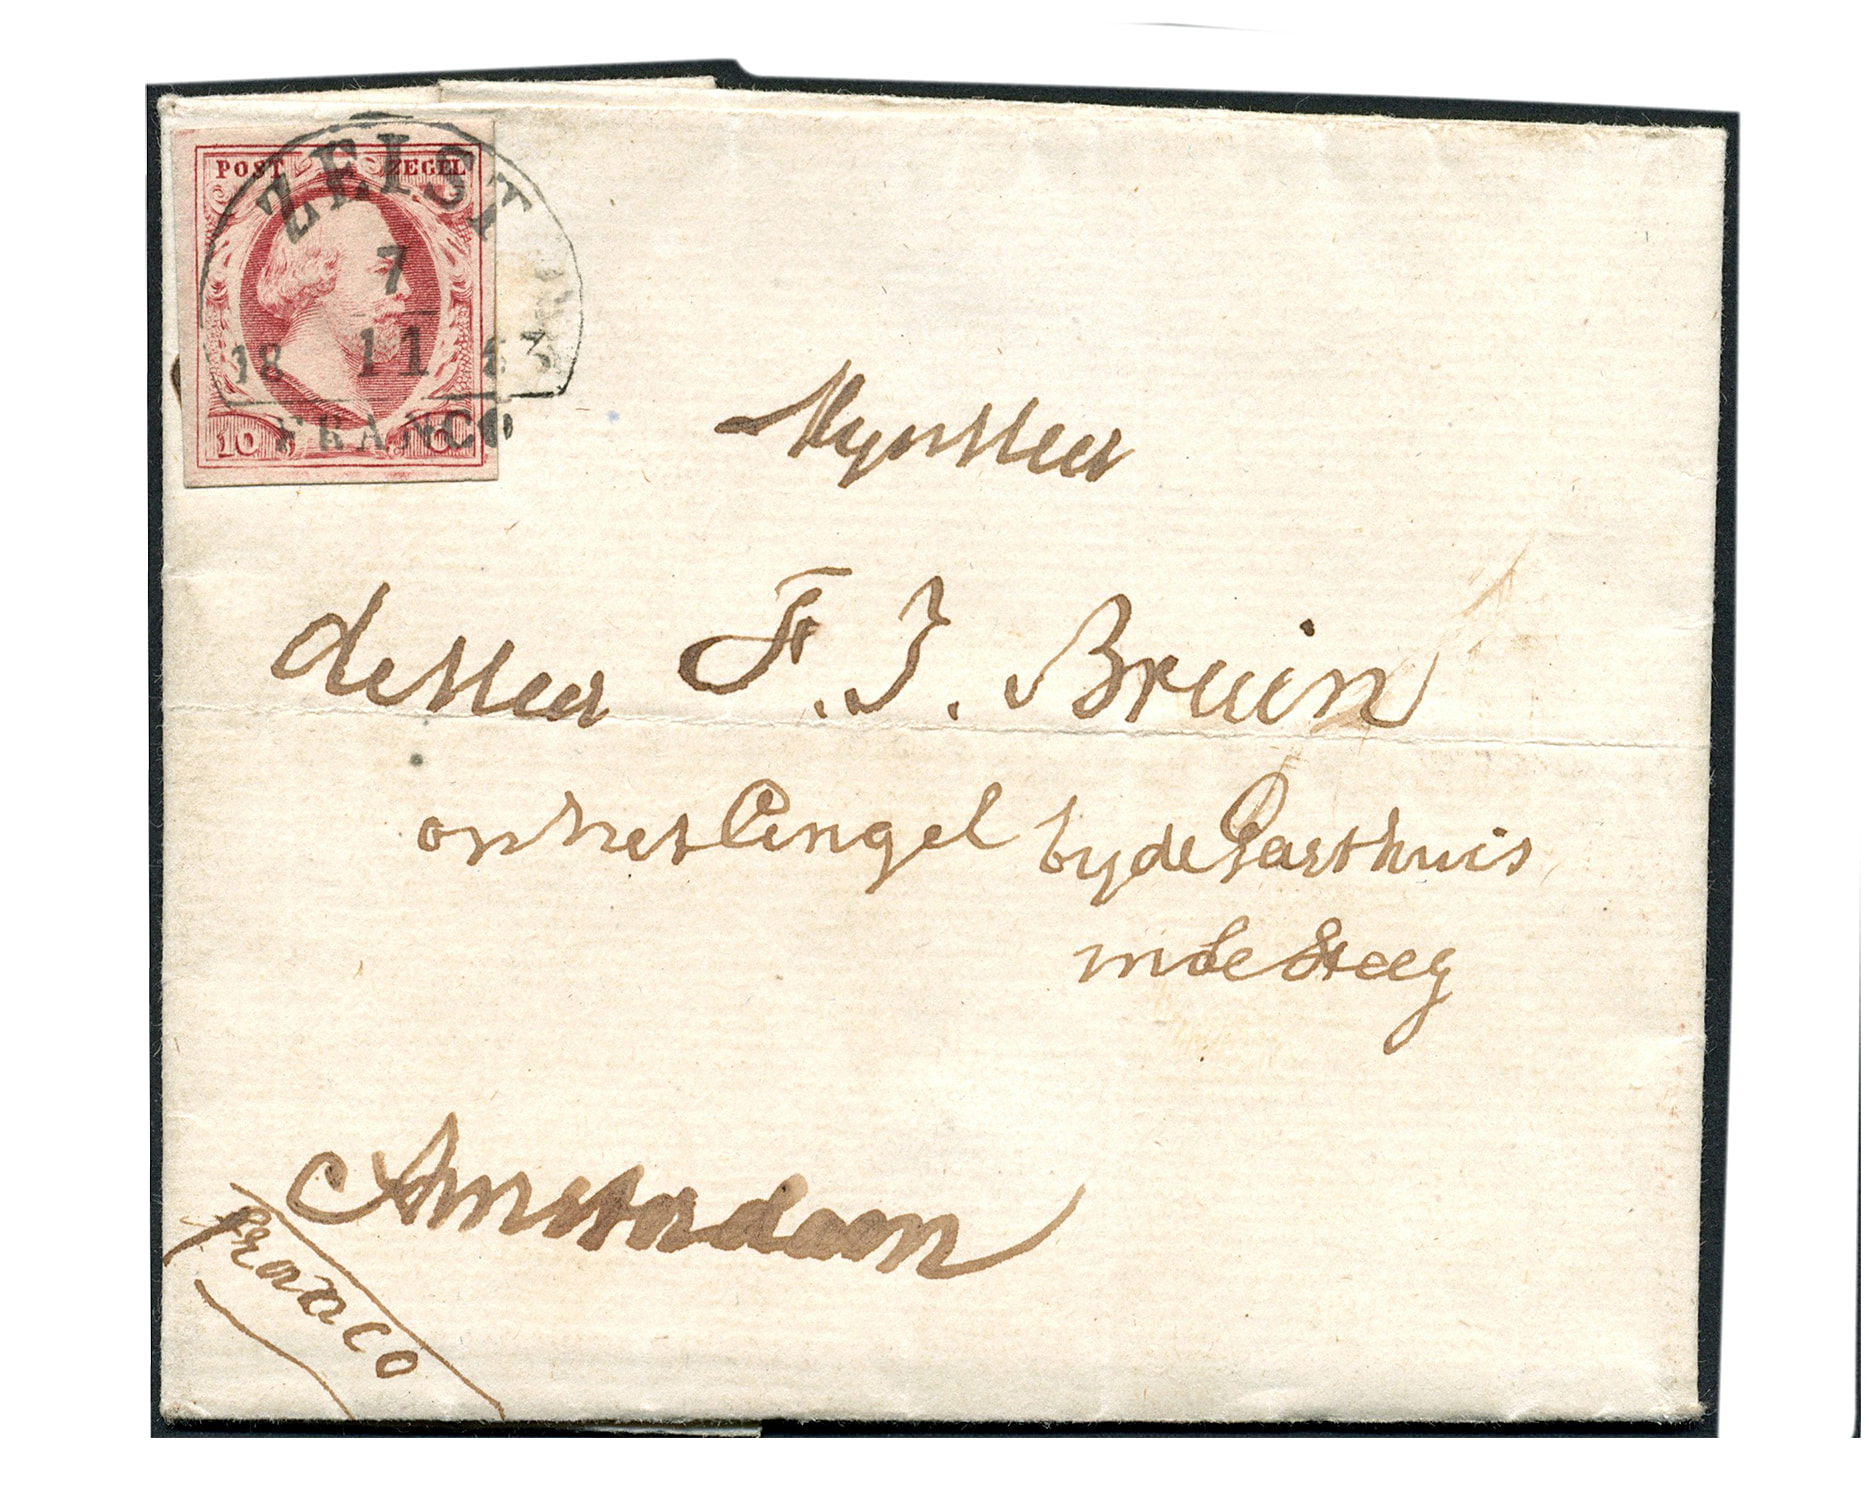 POST ZEGEL
ZEIST
7
18 11 53
10
FRANCO
Mynheer
de Heer F. J. Bruin
op het Cingel by de Gasthuis
in de Steeg
Amsterdam
franco